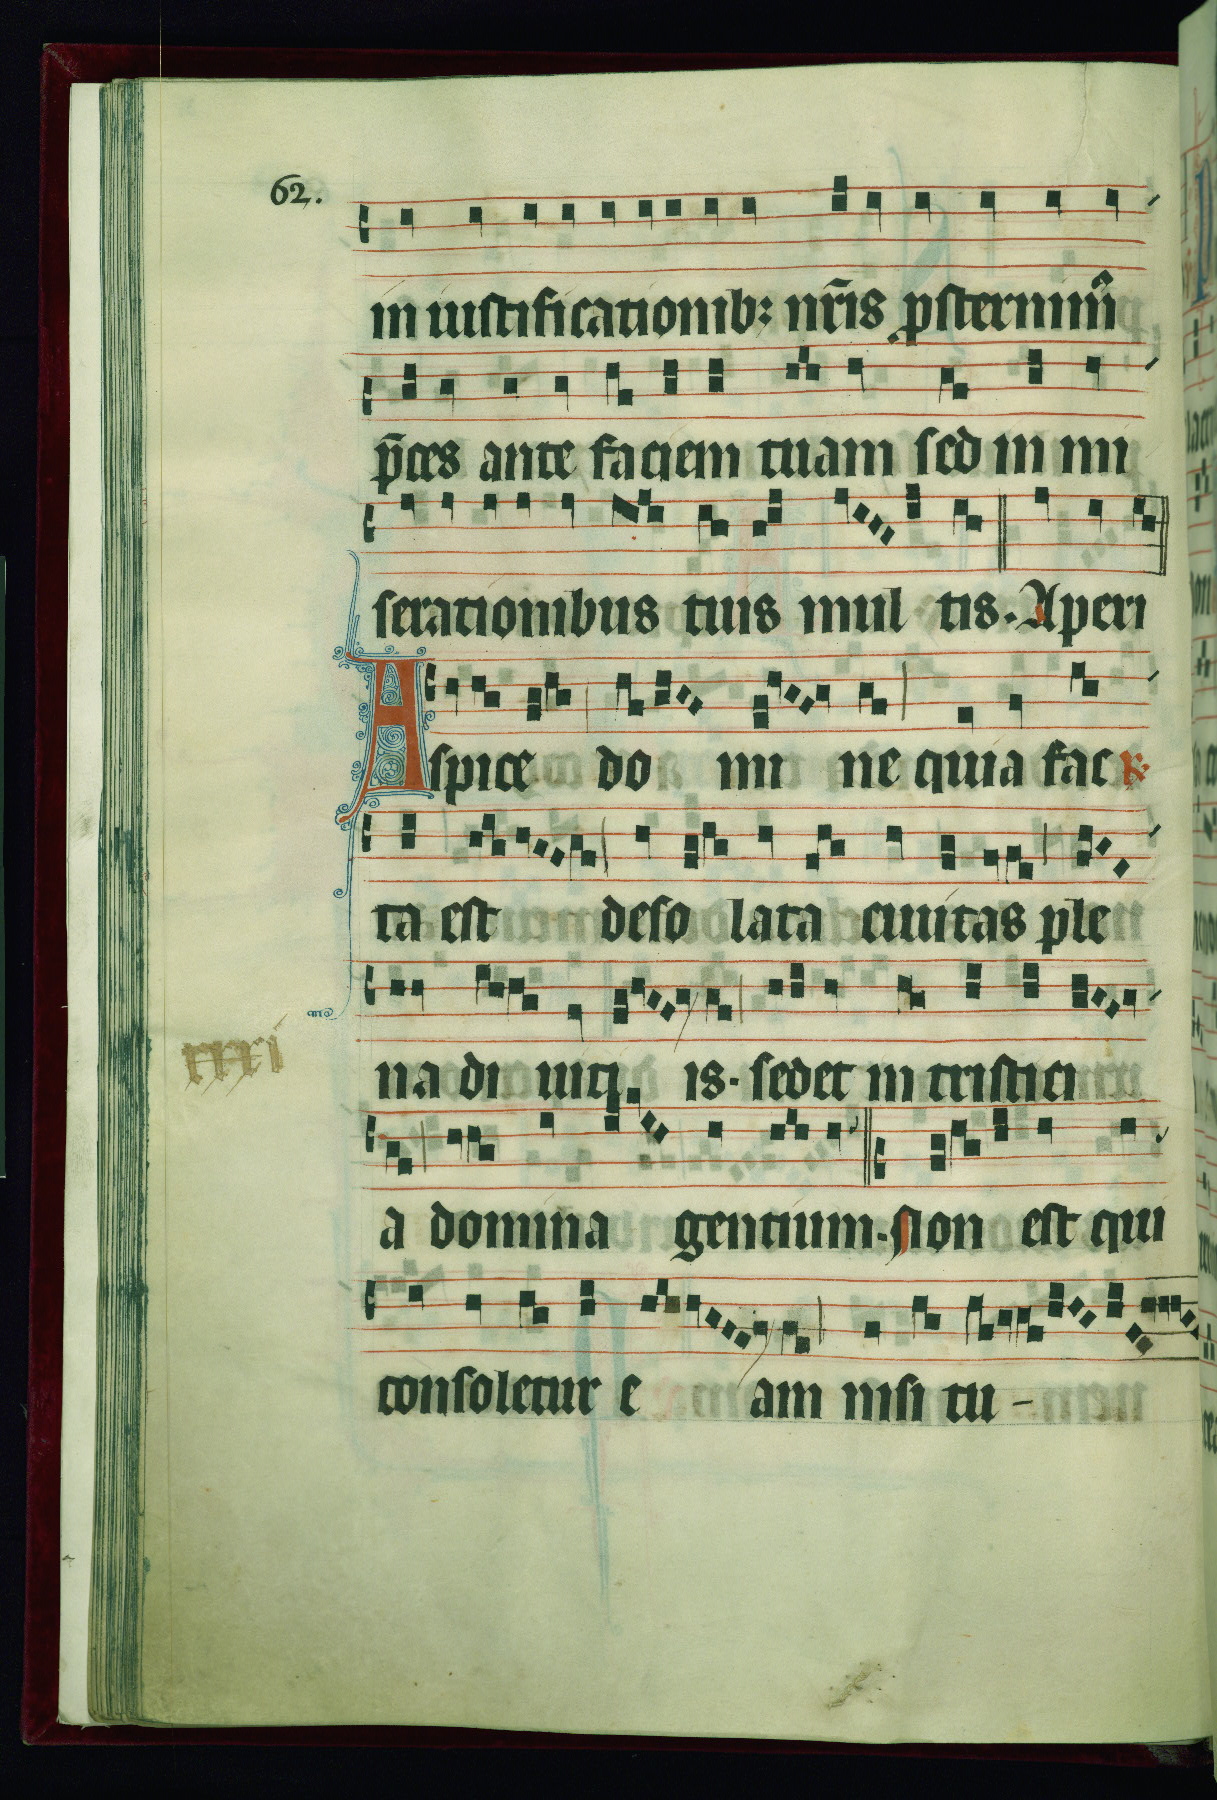 62.
in iustificationib; nr̄is ꝓsternim᷒
p̄ces ante faciem tuam sed in mi
serationibus tuis mul tis. Aperi
Aspice do mi ne quia fac ℟.
ta est deso lata ciuitas ple
na di uiti is. sedet in tristici
a domina gentium. sion est qui
consoletur e am nisi tu –